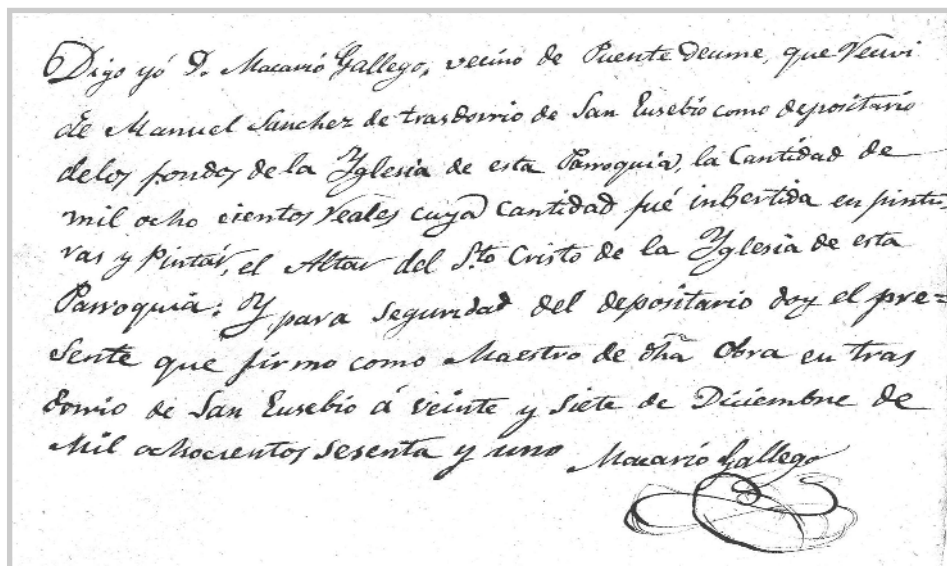 Digo yó D. Macarió Gallego, vecino de Puente Deume, que Recivi
de Manuel Sanchez de trasdorrio de San Eusebio como depositario
delos fondos de la Yglesia de esta Parroquia, la Cantidad de
mil ocho cientos reales cuya Cantidad fué inbertida en pintu
ras y Pintar, el Altar del Sto Cristo de la Yglesia de esta
Parroquia: Y para seguridad del depositario doy el pre=
sente que firmo como Maestro de dha Obra en tras
dorrio de San Eusebio á veinte y siete de Diciembre de
Mil ochocientos sesenta y uno Macarió Gallego